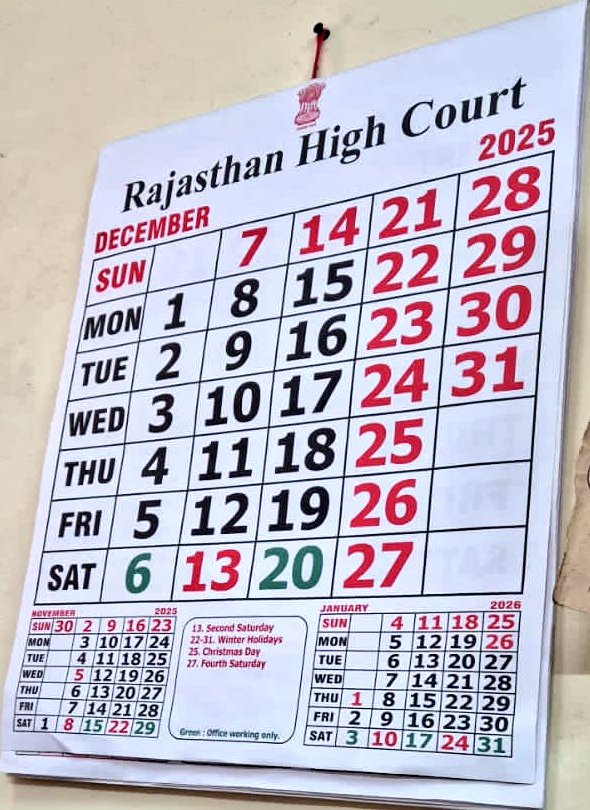 Rajasthan High Court
DECEMBER 2025
SUN 7 14 21 28
MON 1 8 15 22 29
TUE 2 9 16 23 30
WED 3 10 17 24 31
THU 4 11 18 25
FRI 5 12 19 26
SAT 6 13 20 27
NOVEMBER 2025
SUN 30 2 9 16 23
MON 3 10 17 24
TUE 4 11 18 25
WED 5 12 19 26
THU 6 13 20 27
FRI 7 14 21 28
SAT 1 8 15 22 29
13. Second Saturday
22-31. Winter Holidays
25. Christmas Day
27. Fourth Saturday
Green : Office working only.
JANUARY 2026
SUN 4 11 18 25
MON 5 12 19 26
TUE 6 13 20 27
WED 7 14 21 28
THU 1 8 15 22 29
FRI 2 9 16 23 30
SAT 3 10 17 24 31